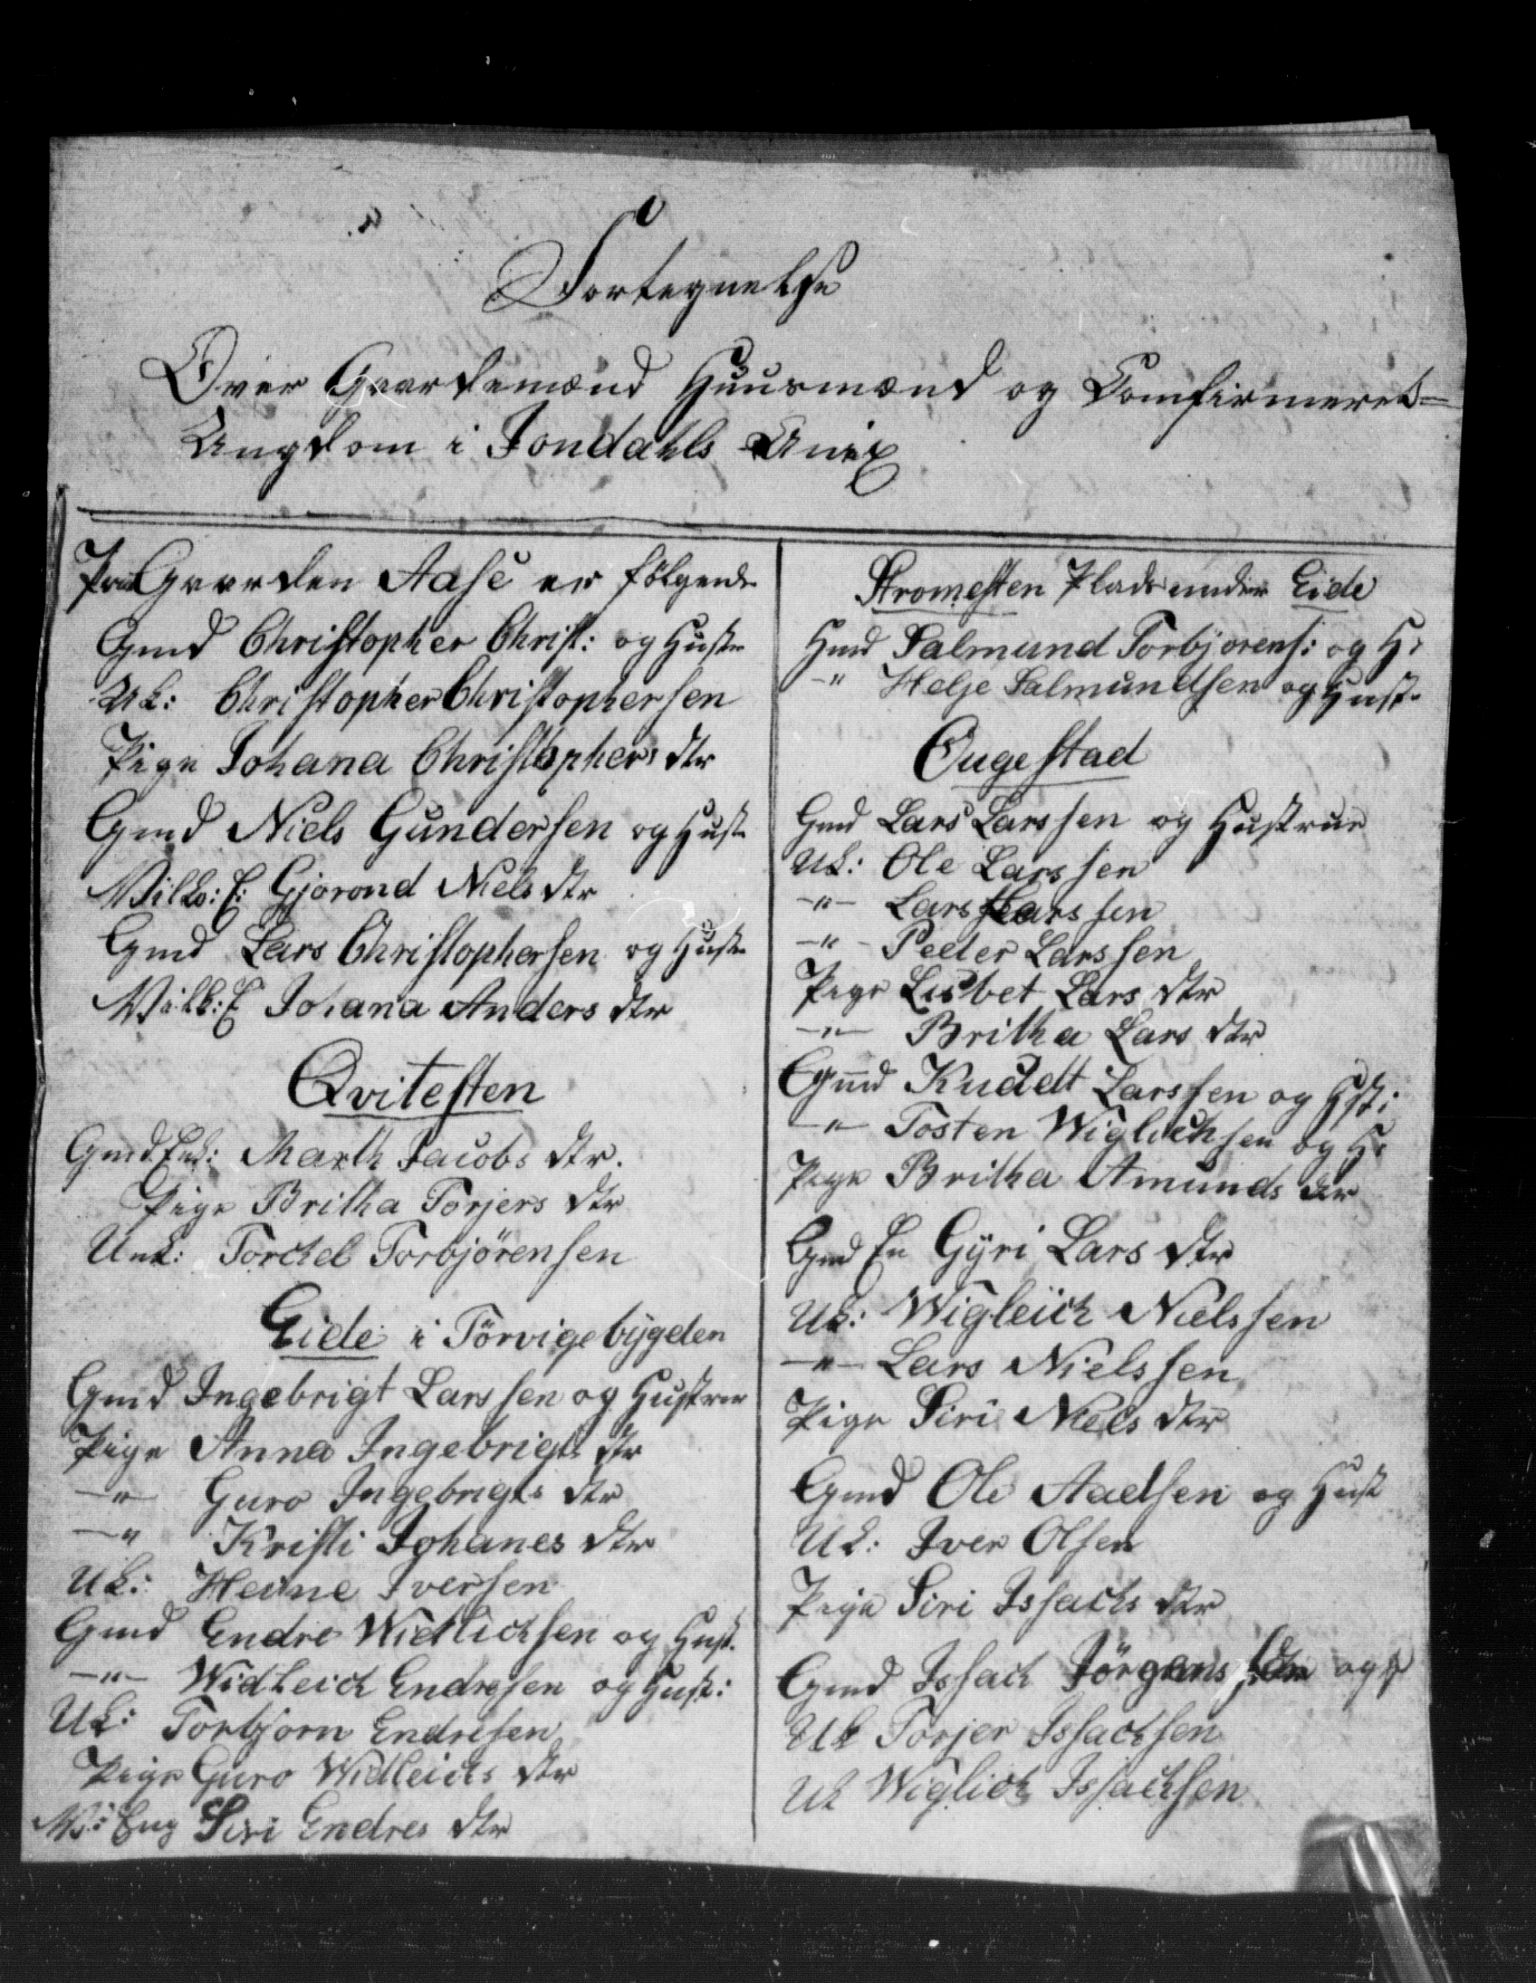 Fortegnelse
Over Gaardemænd Huusmænd og Confirmeret
Ungdom i Jondahls Anex
Paa Gaarden Aase er følgende
Gmd Christopher Christ: og Hustr
UK: Christopher Christophersen
Pige Johana Christophers dtr
Gmd Niels Gundersen og Hustr
Gjorond Niels dtr
Gmd Lars Christophersen og Hustr
Johana Anders dtr
Qvitesten
Gmd Enk: Marth Jacobs dtr.
Pige Britha Torjers dtr
Unk: Torckel Torbjörensen
Eide i Törvigebygden
Gmd Ingebrigt Larssen og Hustrue
Pige Anna Ingebrigts dtr
—"— Guro Ingebrigts dtr
—" Kristi Johanes dtr
UK: Heine Iversen
Gmd Endre Widlichsen og Hust.
—"— Widleich Endresen og Hust:
UK: Torbjorn Endresen
Pige Guro Widleichs dtr
Siri Endres dtr
Stromesten Plads under Eide
Hmd Salmund Torbjorens: og H:
—" Helje Salmundsen og Hust.
Ougestad
Gmd Lars Larssen og Hustrue
UK: Ole Larssen
—"— Lars Larssen
—"— Peder Larssen
Pige Lisbet Lars dtr
—"— Britha Lars dtr
Gmd Knudt Larssen og Hst:
—"— Tosten Wiglichsen og H:
Pige Britha Amunds dtr
Gmd En Gÿri Lars dtr
UK: Wigleich Nielssen
—"— Lars Nielssen
Pige Siri Niels dtr
Gmd Ole Aadsen og Hust
UK: Iver Olsen
Pige Siri Issachs dtr
Gmd Issach Jörgens og H
UK Torjer Issachsen
UK Wiglich Issachsen